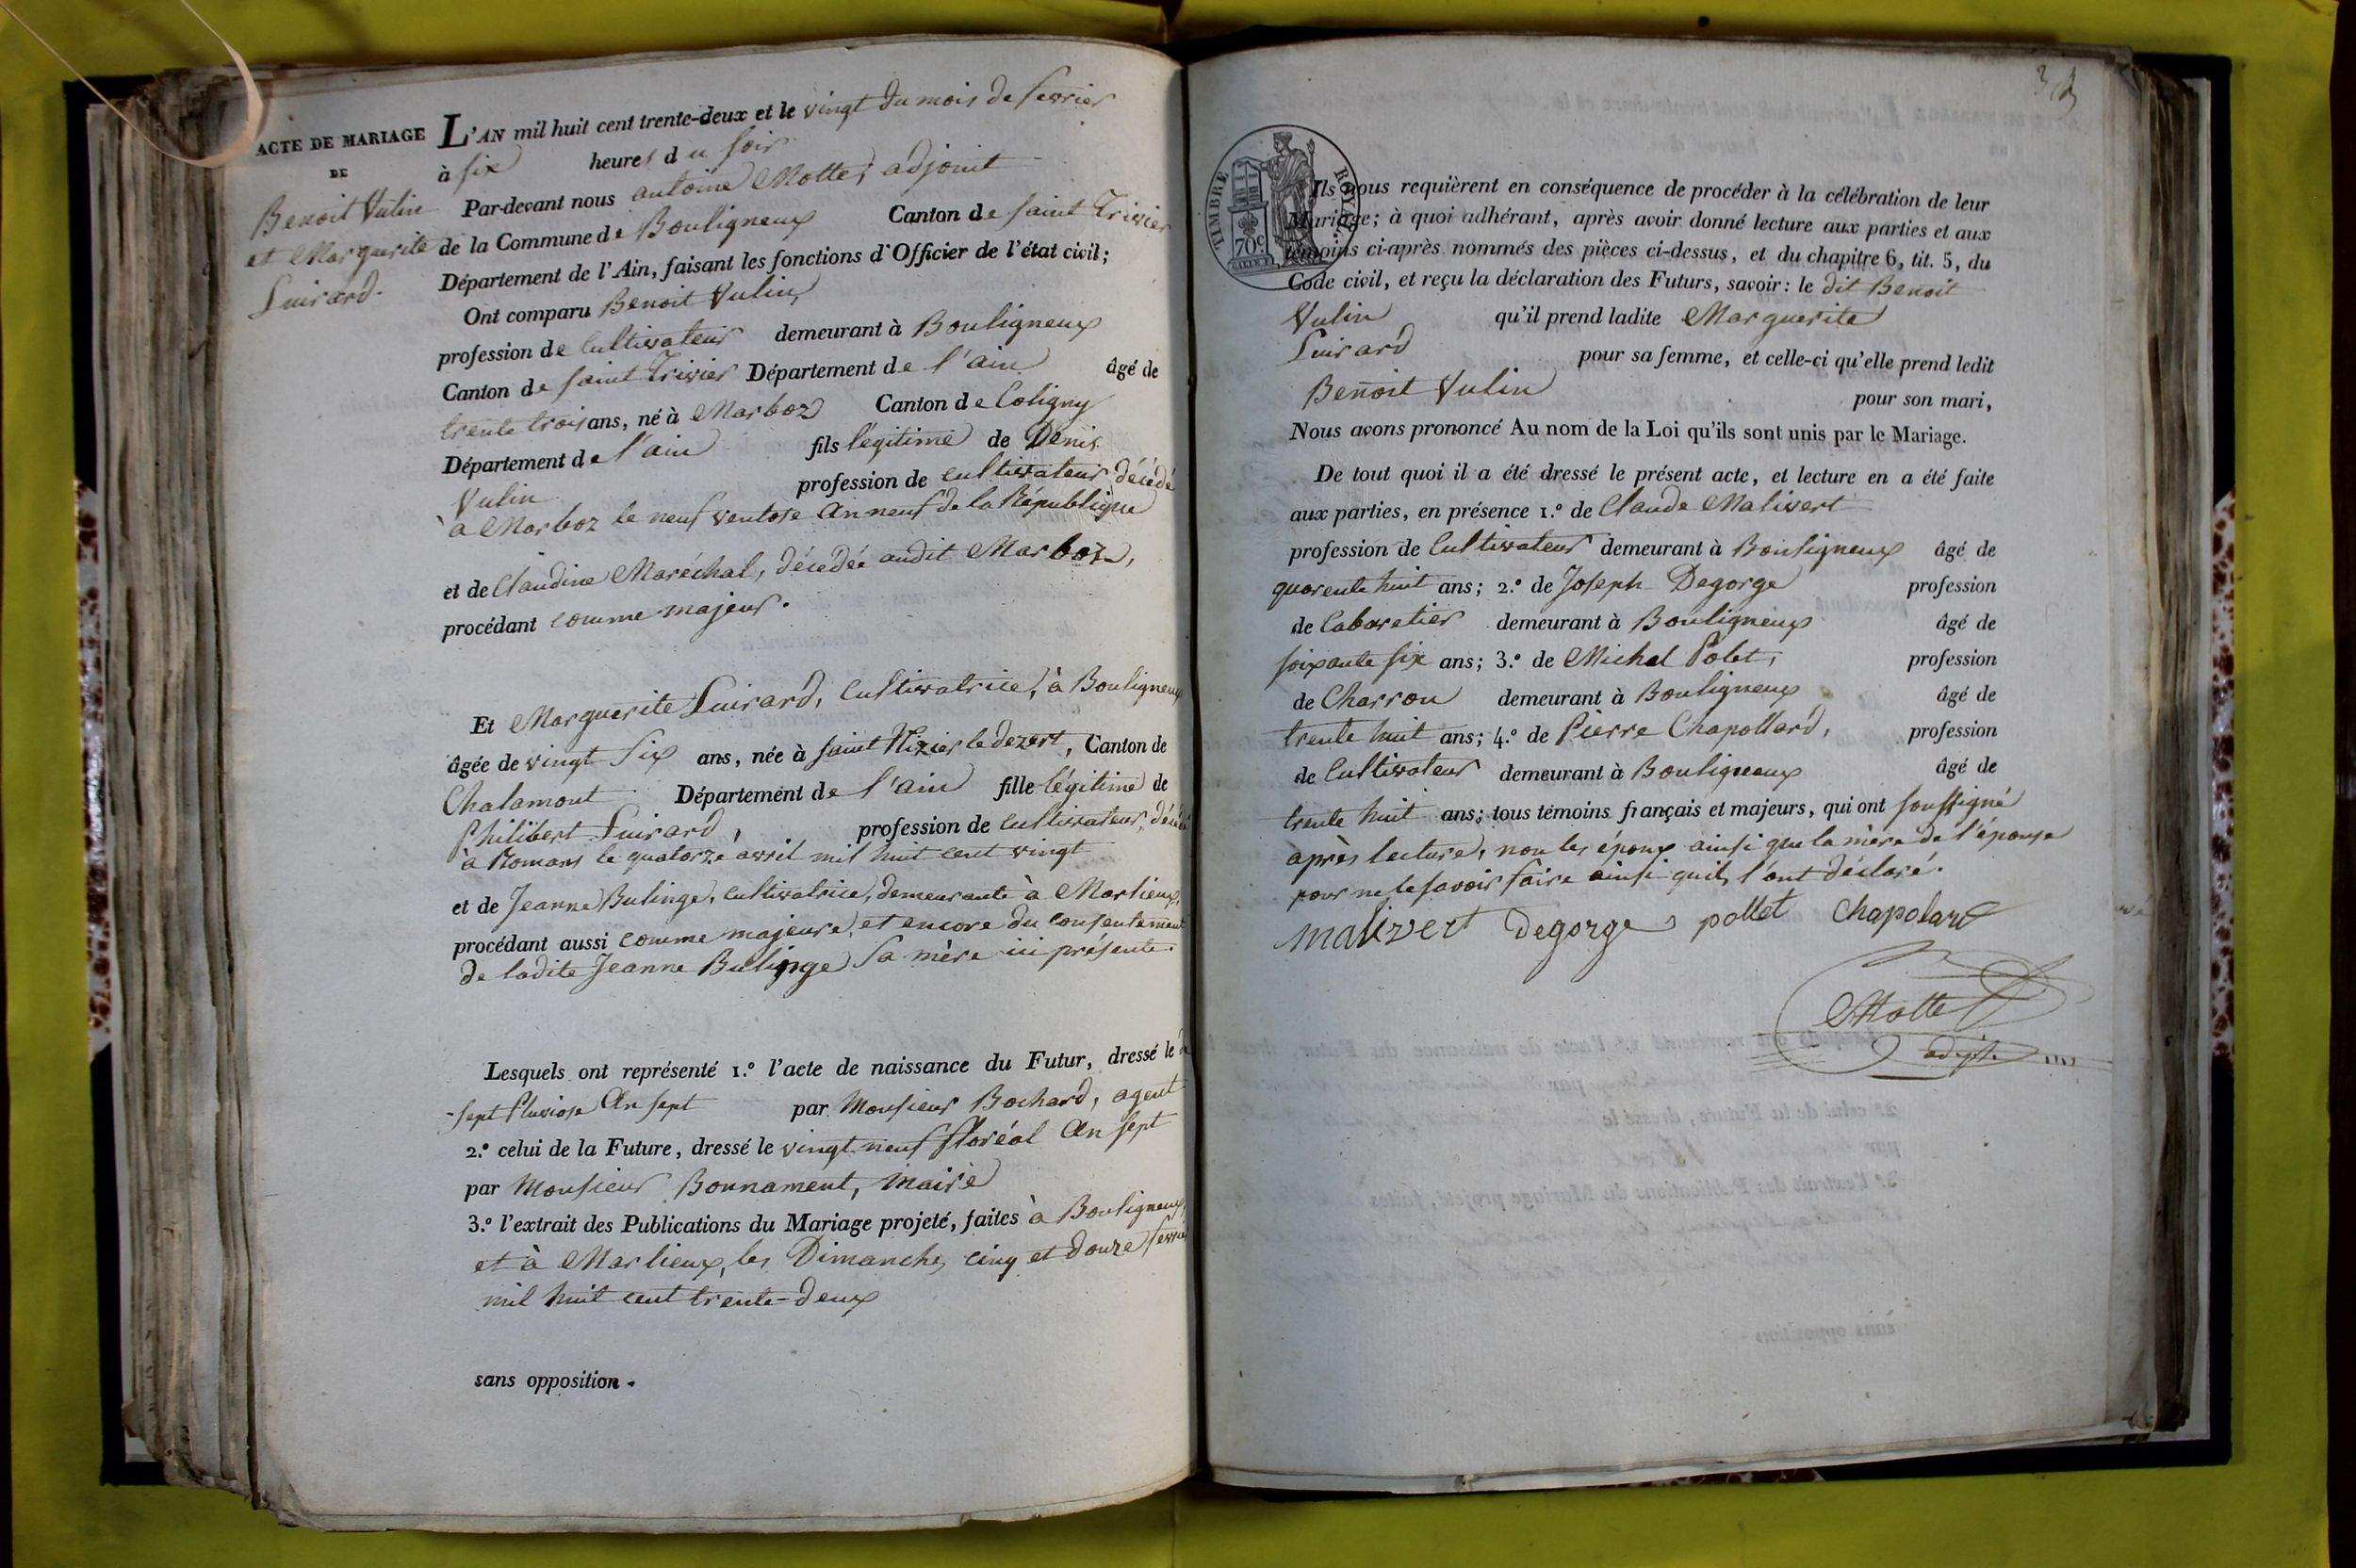 ACTE DE MARIAGE
DE
Benoit Vulin
et Marguerite
Luirard.
L'AN mil huit cent trente-deux et le vingt du mois de fevrier
à six heures du soir
Par-devant nous antoine Motte, adjoint
de la Commune de Bouligneux Canton de saint Trivier
Département de l'Ain, faisant les fonctions d'Officier de l'état civil;
Ont comparu Benoit Vulin,
profession de cultivateur demeurant à Bouligneux
Canton de saint Trivier Département de l'ain âgé de
trente trois ans, né à Marboz Canton de Coligny
Département de l'ain fils légitime de Denis
Vulin profession de cultivateur décédé
à Marboz le neuf ventose An neuf de la République
et de Claudine Maréchal, décédée audit Marboz,
procédant comme majeur.
Et Marguerite Luirard, cultivatrice, à Bouligneux
âgée de vingt six ans, née à saint Nizier le dezert, Canton de
Chalamont Département de l'ain fille légitime de
Philibert Luirard, profession de cultivateur, décédé
à Romans le quatorze avril mil huit cent vingt
et de Jeanne Bulinge, cultivatrice, demeurante à Marlieux,
procédant aussi comme majeure, et encore du consentement
de ladite Jeanne Bulinge sa mère ici présente.
Lesquels ont représenté 1.º l'acte de naissance du Futur, dressé le
-sept Pluviose An sept par Monsieur Bochard, agent
2.º celui de la Future, dressé le vingt neuf floréal An sept
par Monsieur Bonnament, maire
3.º l'extrait des Publications du Mariage projeté, faites à Bouligneux,
et à Marlieux, les Dimanches cinq et douze fevrier
mil huit cent trente-deux
sans opposition.
TIMBRE ROYAL
70c
Ils nous requièrent en conséquence de procéder à la célébration de leur
Mariage; à quoi adhérant, après avoir donné lecture aux parties et aux
témoins ci-après nommés des pièces ci-dessus, et du chapitre 6, tit. 5, du
Code civil, et reçu la déclaration des Futurs, savoir: le dit Benoit
Vulin qu'il prend ladite Marguerite
Luirard pour sa femme, et celle-ci qu'elle prend ledit
Benoit Vulin pour son mari,
Nous avons prononcé Au nom de la Loi qu'ils sont unis par le Mariage.
De tout quoi il a été dressé le présent acte, et lecture en a été faite
aux parties, en présence 1.º de Claude Malivert
profession de Cultivateur demeurant à Bouligneux âgé de
quarente huit ans; 2.º de Joseph Degorge profession
de Cabaretier demeurant à Bouligneux âgé de
soixante six ans; 3.º de Michel Polet, profession
de Charron demeurant à Bouligneux âgé de
trente huit ans; 4.º de Pierre Chapollard, profession
de Cultivateur demeurant à Bouligneux âgé de
trente huit ans; tous témoins français et majeurs, qui ont soussigné
après lecture, non les époux ainsi que la mère de l'épouse
pour ne le savoir faire ainsi quils l'ont déclaré.
malivert Degorge pollet Chapolard
Motte
adjt